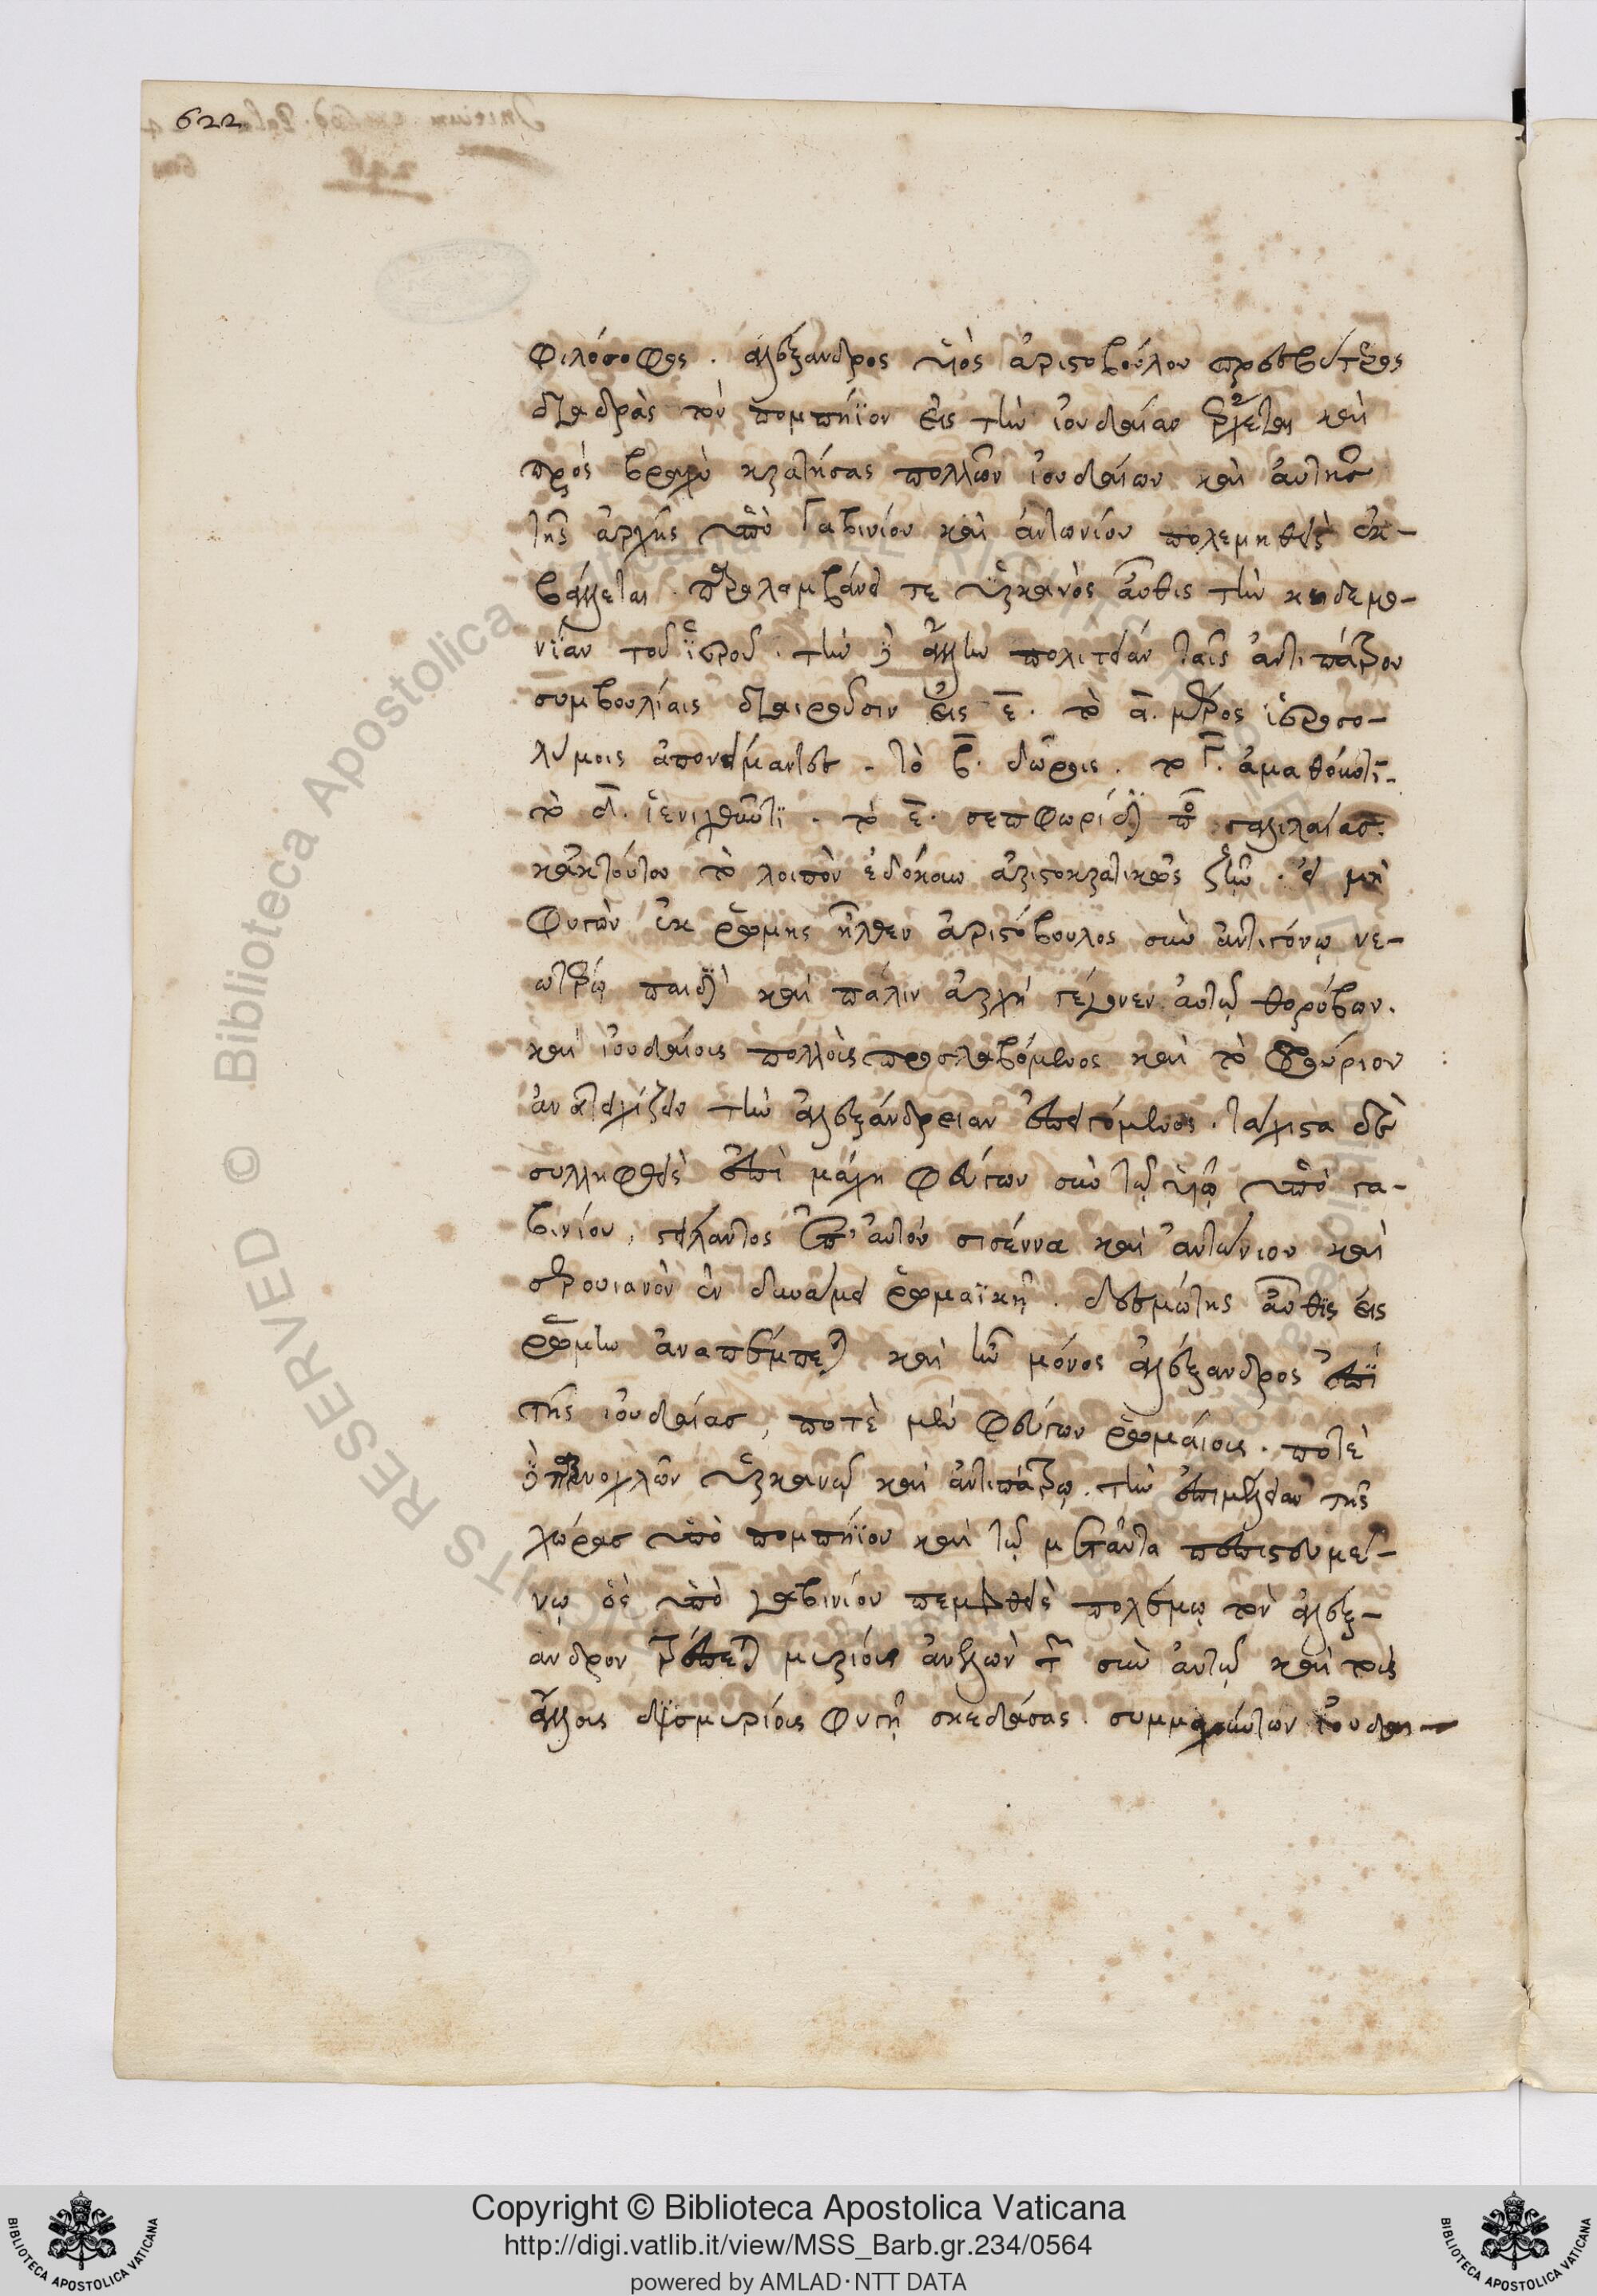 622
φιλόσοφος . ἀλέξανδρος υἱὸς ἀριστοβούλου πρεσβύτερος
διαδρὰς τὸν πομπήϊον εἰς τὴν ἰουδαίαν ἔρχεται καὶ
πρὸς βραχὺ κρατήσας πολλῶν ἰουδαίων καὶ αὐτῆς
τῆς ἀρχῆς ὑπὸ Γαβινίου καὶ ἀντωνίου πολεμηθεὶς ἐκ-
βάλλεται . παραλαμβάνει τε ὑρκανὸς αὖθις τὴν κηδεμο-
νίαν τοῦ ἱεροῦ . τὴν δὲ ἄλλην πολιτείαν ταῖς ἀντιπάτρου
συμβουλίαις διαιροῦσιν εἰς ε̄ . τὸ ᾱ . μέρος ἱεροσο-
λύμοις ἀπονείμαντες . τὸ β̄ . δώροις . τὸ Γ̄ . ἀμαθοῦντι .
τὸ δ̄ . ἱεριχοῦντι . τὸ ε̄ . σεπφωρίδι τῆς γαλιλαίας .
κἀκ τούτου τὸ λοιπὸν ἐδόκουν ἀριστοκρατικῶς ζῆν . εἰ μὴ
φυγὼν ἐκ ῥώμης ἦλθεν ἀριστόβουλος σὺν ἀντιγόνῳ νε-
ωτέρῳ παιδὶ καὶ πάλιν ἀρχὴ γέγονεν αὐτῷ θορύβων .
καὶ ἰουδαίοις πολλοῖς προσλαβόμενος καὶ τὸ φρούριον
ἀνατειχίζειν τὴν ἀλεξάνδρειαν ἐπειγόμενος . τάχιστα δὲ
συλληφθεὶς ἐπὶ μάχῃ φεύγων σὺν τῷ υἱῷ ὑπὸ γα-
βινίου , στείλαντος ἐπ' αὐτὸν σισέννα καὶ ἀντώνιον καὶ
σερουιανὸν ἐν δυνάμει ῥωμαϊκῇ . δεσμώτης αὖθις εἰς
ῥώμην ἀναπέμπεται καὶ ἦν μόνος ἀλέξανδρος ἐπὶ
τῆς ἰουδαίας , ποτὲ μὲν φεύγων ῥωμαίοις . ποτὲ
δὲ παρενοχλῶν ὑρκανῷ καὶ ἀντιπάτρῳ . τὴν ἐπιμέλειαν τῆς
χώρας ὑπὸ πομπηίου καὶ τῷ μετὰ ταῦτα πεπιστευμέ-
νῳ ὃς ὑπὸ γαβινίου πεμφθεὶς πολέμῳ τὸν ἀλέξ-
ανδρον τρέπεται μυρίοις ἀνελὼν τ̄ σὺν αὐτῷ καὶ τοὺς
ἄλλοις δισμυρίοις φυγῇ σκεδάσας . συμμαχούντων ἰουδαι-
Copyright © Biblioteca Apostolica Vaticana
http://digi.vatlib.it/view/MSS_Barb.gr.234/0564
powered by AMLAD·NTT DATA